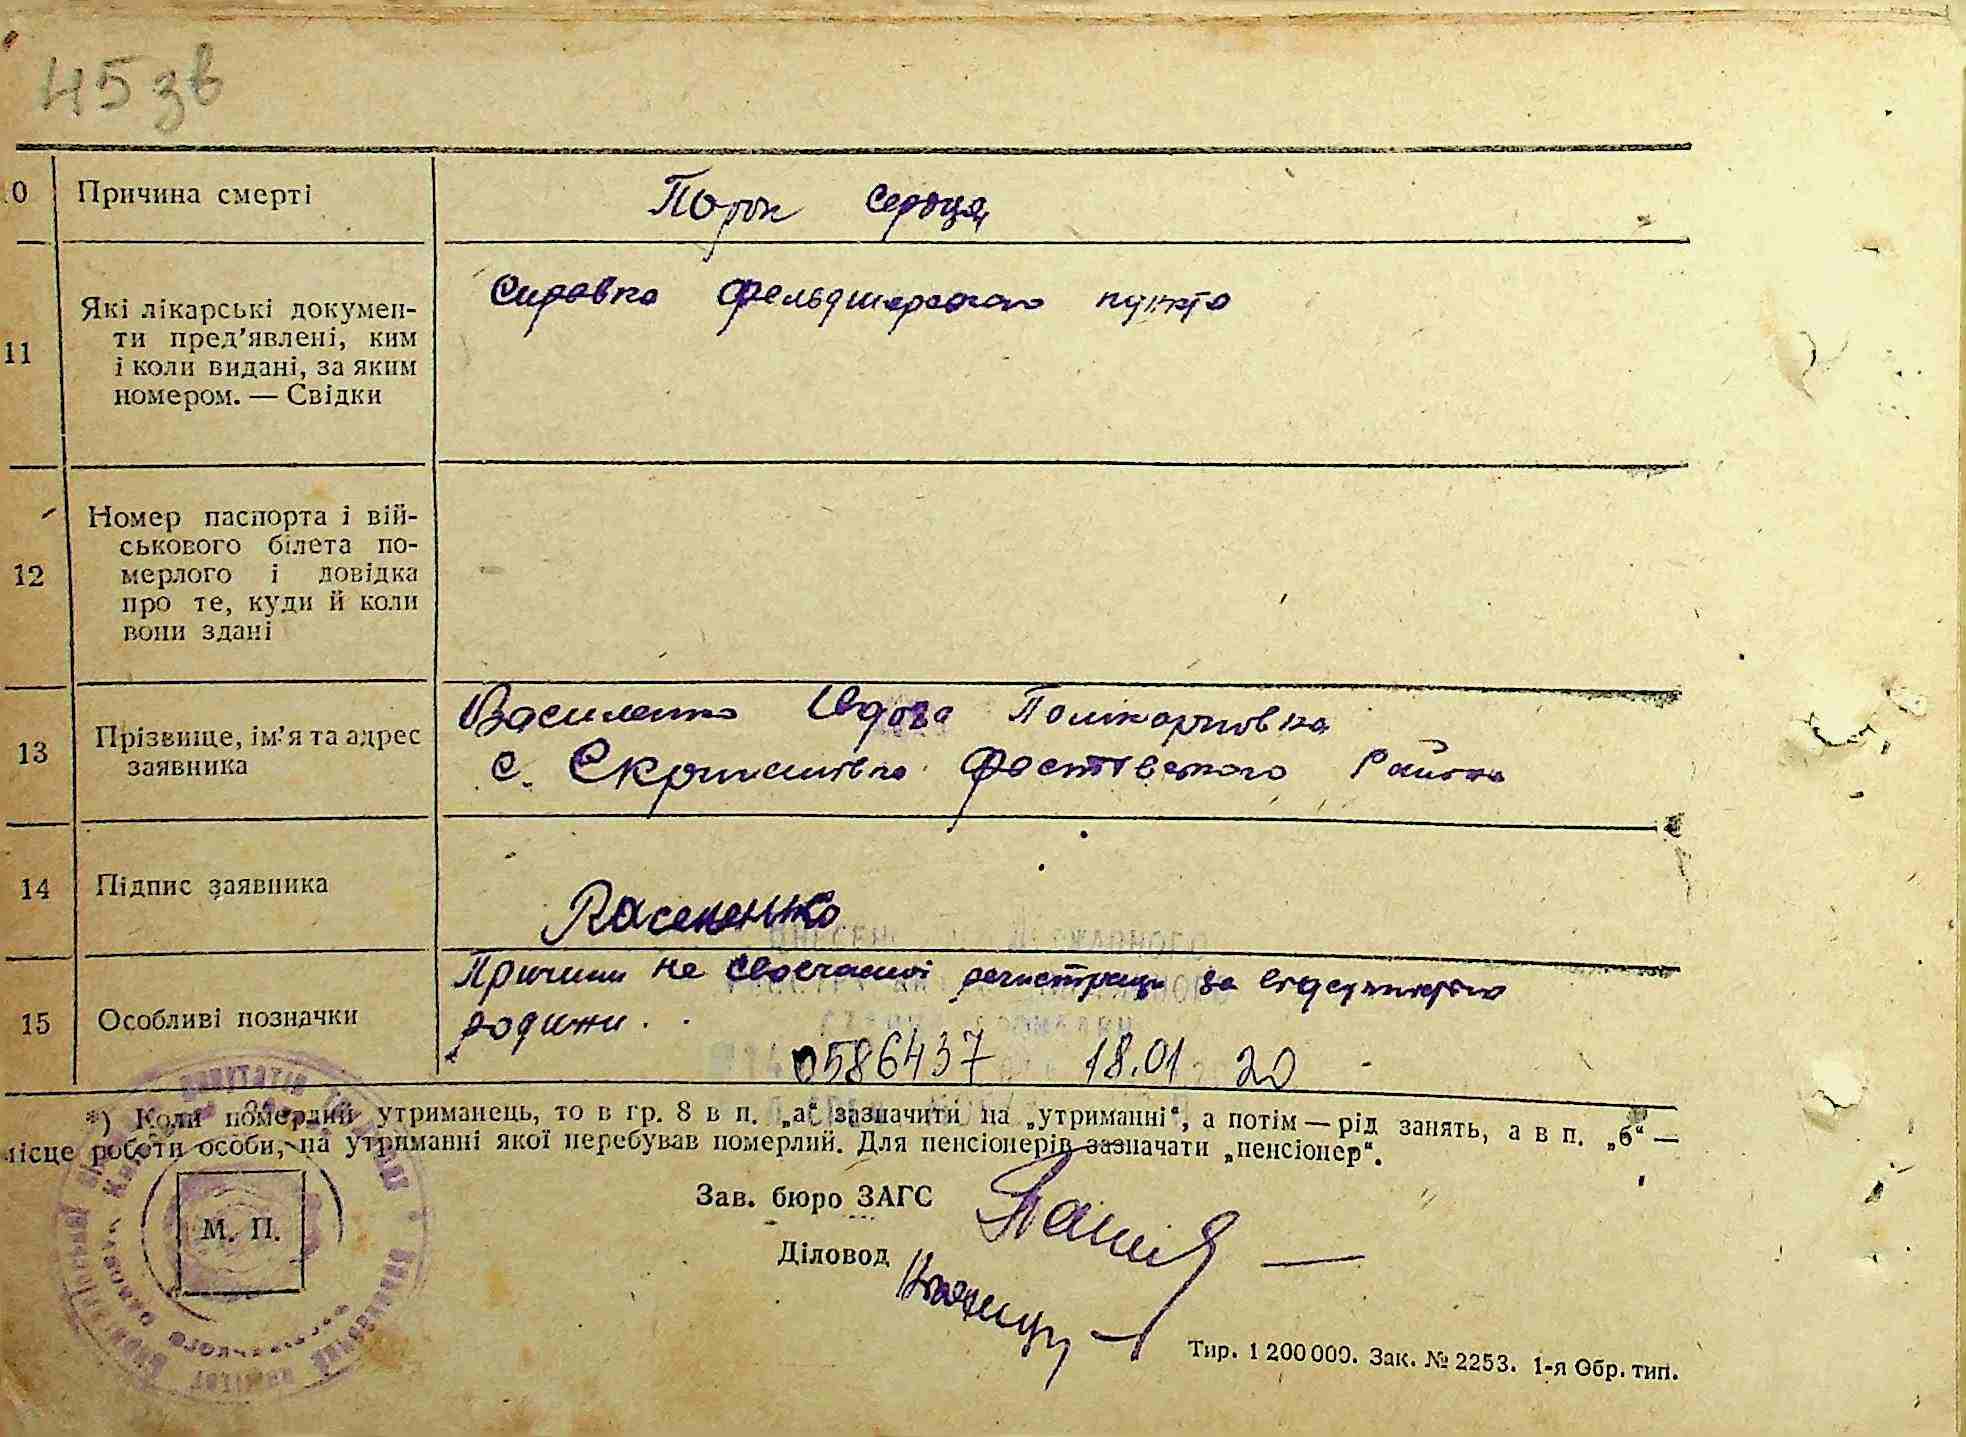 45 зв
10 Причина смерті Порок сердца
11 Які лікарські докумен-
ти пред'явлені, ким
і коли видані, за яким
номером. — Свідки
Справка фельдшерского пункта
12 Номер паспорта і вій-
ськового білета по-
мерлого і довідка
про те, куди й коли
вони здані
13 Прізвище, ім'я та адрес
заявника
Василенко Полікарповна
с. Фастівського району
14 Підпис заявника
15 Особливі позначки
Причини не своєчасної регистрації за відсутністю
родини.
0586437 18.01 20
*) Коли померлий утриманець, то в гр. 8 в п. „а“ зазначити на „утриманні“, а потім — рід занять, а в п. „б“ —
місце роботи особи, на утриманні якої перебував померлий. Для пенсіонерів зазначати „пенсіонер“.
Зав. бюро ЗАГС
М. П.
Діловод
Тир. 1 200 000. Зак. № 2253. 1-я Обр. тип.